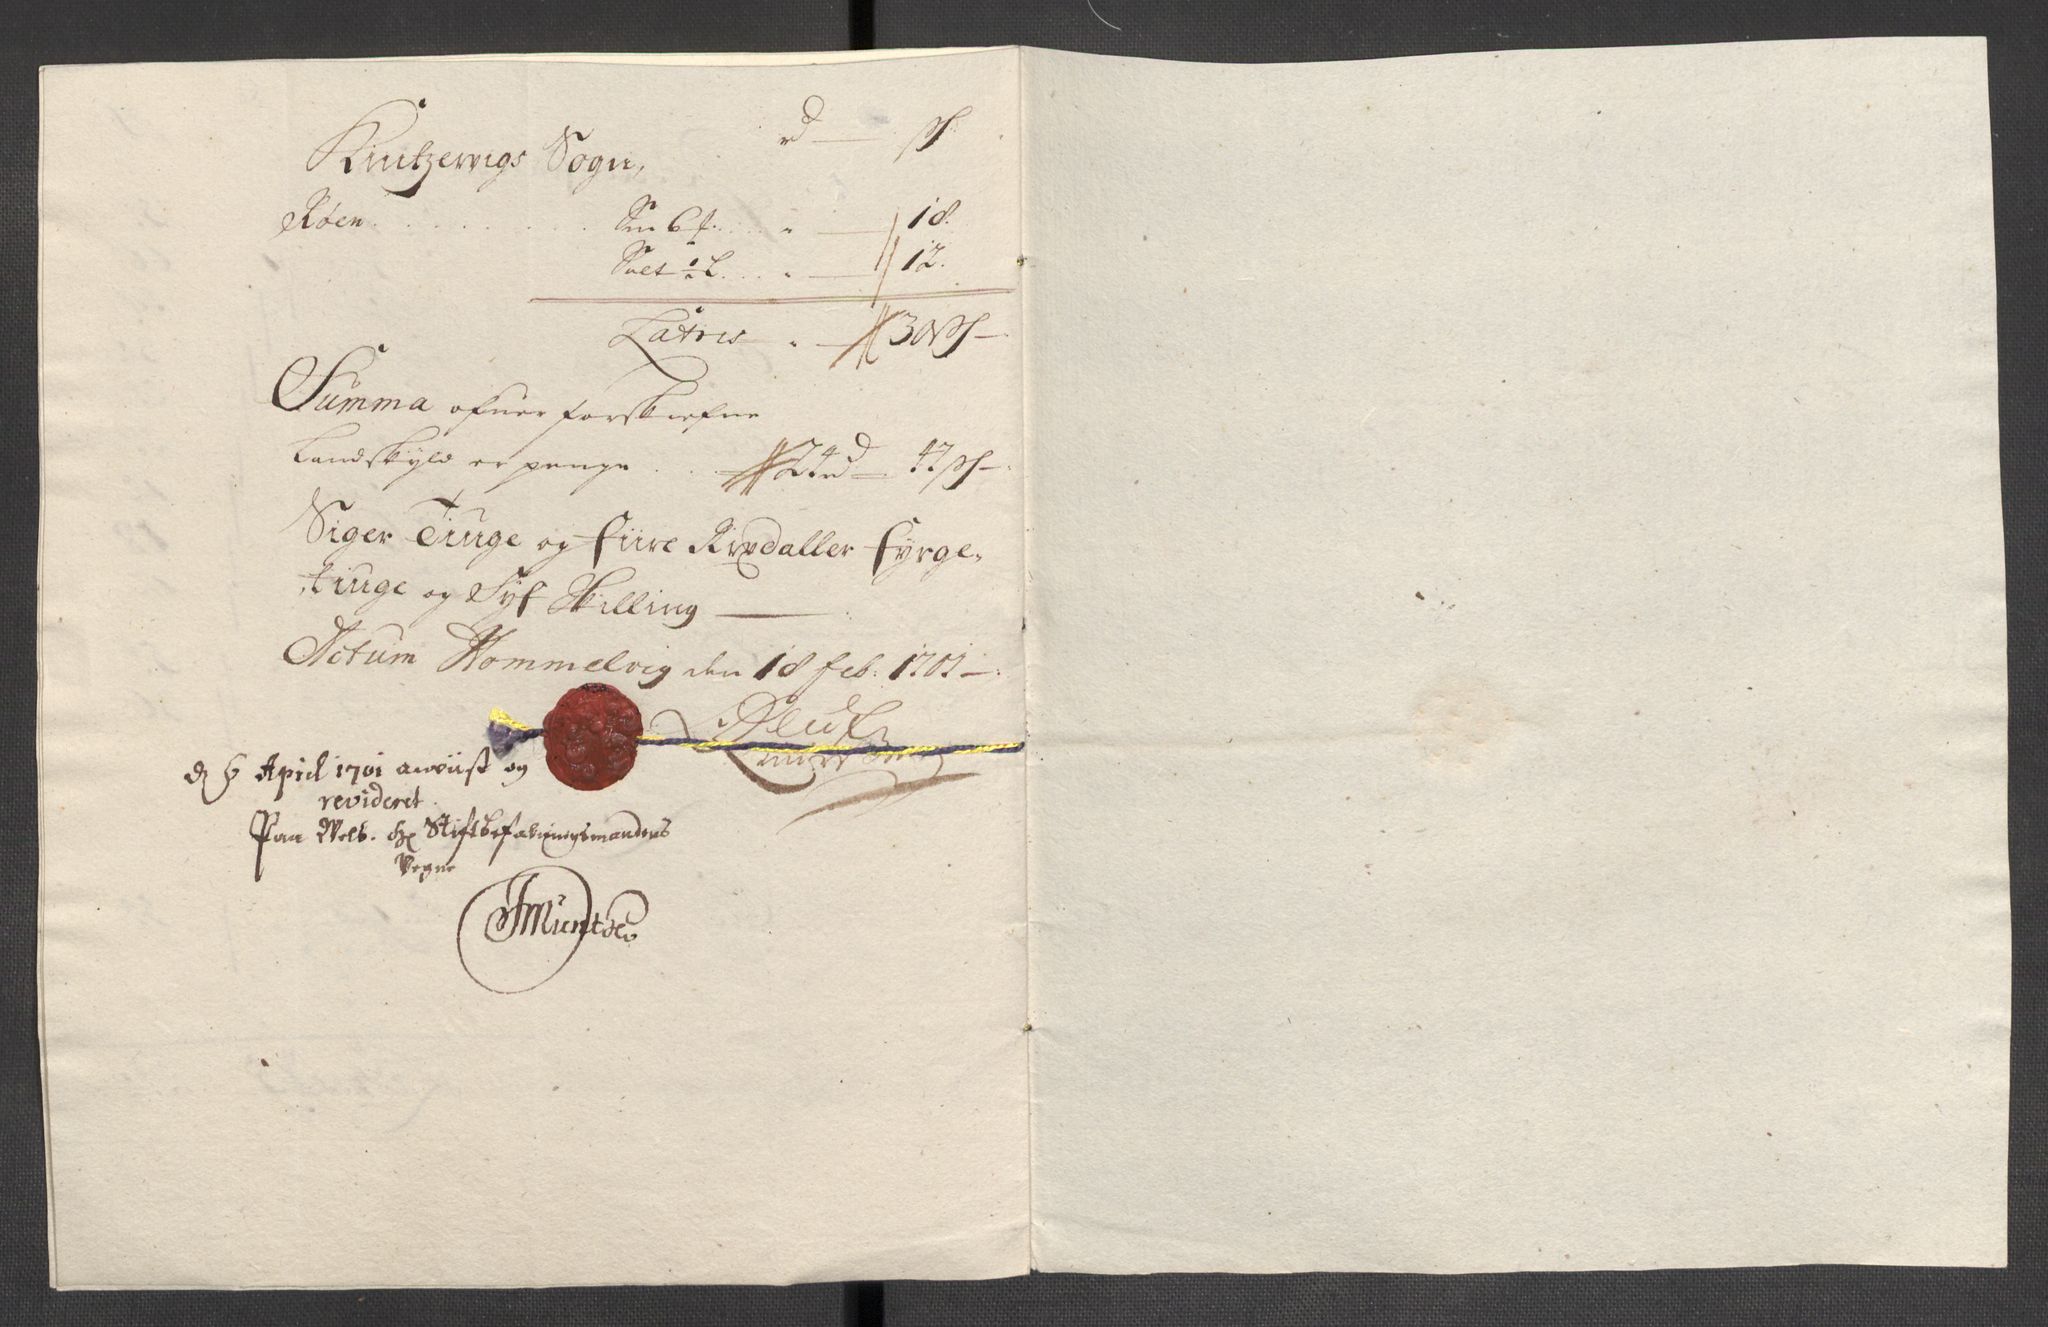 rd — ß
Kintzervigs Sogn,
Røen . . . . . . . . Sm 6 f. . . . " — 18.
Salt ½ L. . . . " — 12.
Latris " — 30 ß —
Summa ofuer forskrefne
Landskyld er penge . . . 24 rd — 47 ß —
Siger Tiuge og fiire Rixdaller fyrge-
tiuge og Syf Skilling —
Actum Hommelvig den 18 feb: 1701 —
d 6 April 1701 anviist og
revideret
Paa Welb. Hr Stiftbefalningsmandens
Vegne
JMunthe